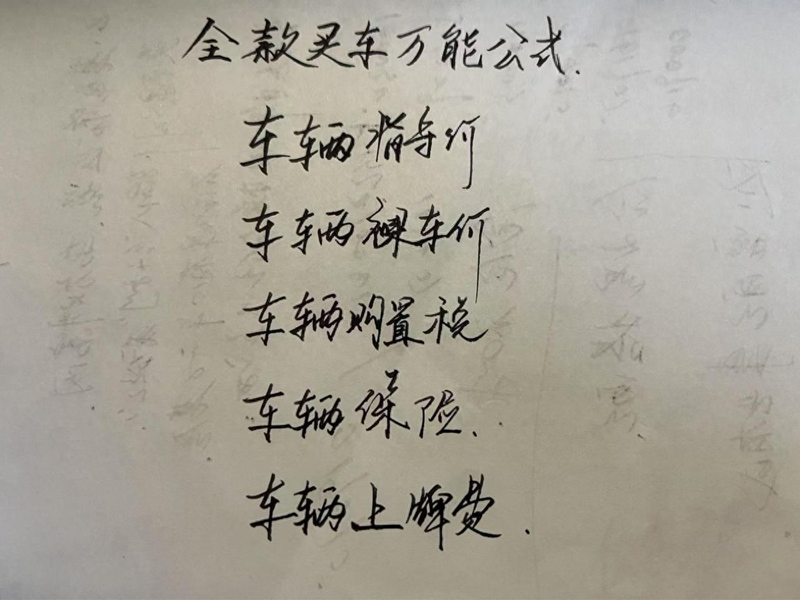 全款买车万能公式.
车辆指导价
车辆裸车价
车辆购置税
车辆保险.
车辆上牌费.